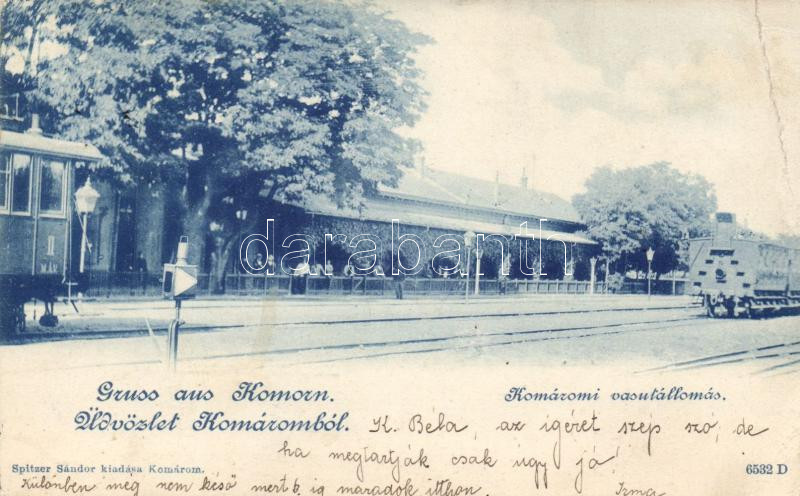 II
darabanth
Gruss aus Komorn.
Komáromi vasutállomás.
Üdvözlet Komáromból.
K. Béla, az igéret szép szó, de
ha megtartják csak úgy jó!
Spitzer Sándor kiadása Komárom.
6532 D
Különben még nem késő mert 6. ig maradok itthon.
Irma